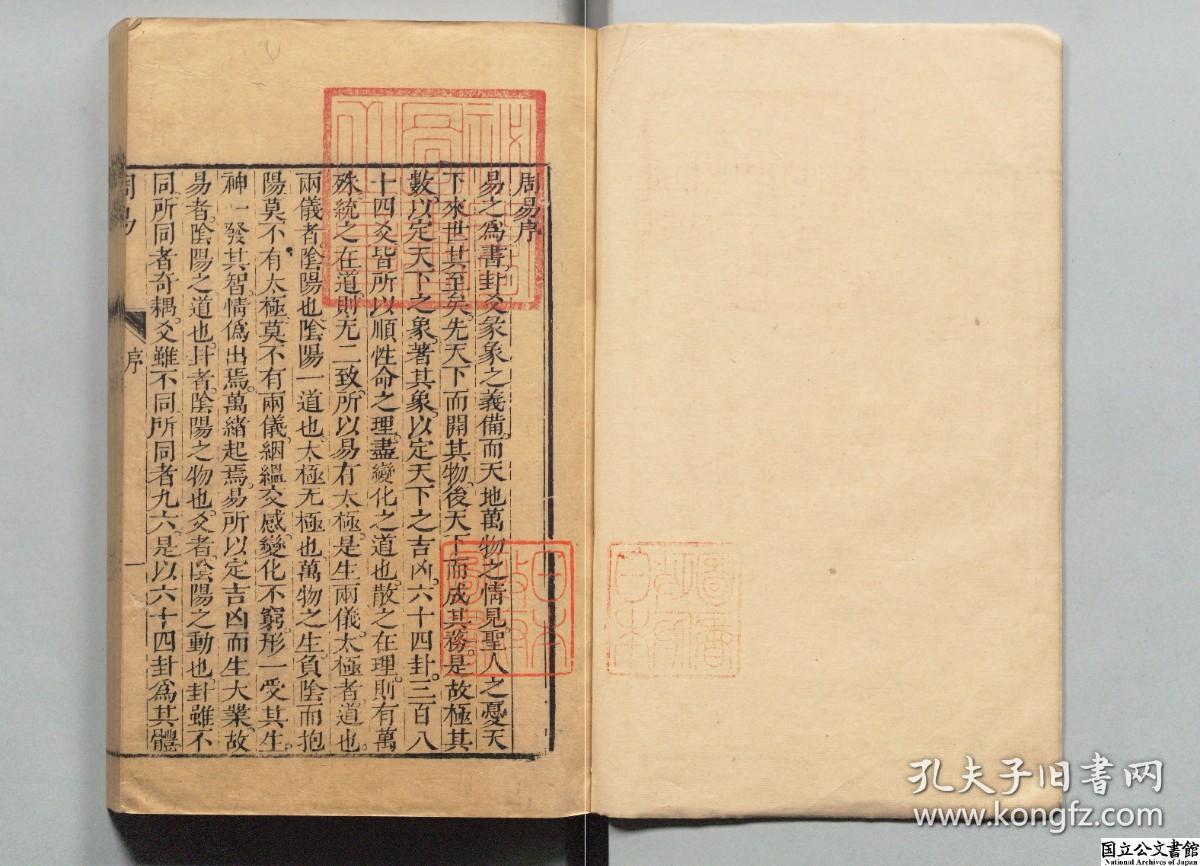 周易序
易之爲書卦爻彖象之義備而天地萬物之情見聖人之憂天
下來世其至矣先天下而開其物後天下而成其務是故極其
數以定天下之象著其象以定天下之吉凶六十四卦三百八
十四爻皆所以順性命之理盡變化之道也散之在理則有萬
殊統之在道則无二致所以易有太極是生兩儀太極者道也
兩儀者陰陽也陰陽一道也太極无極也萬物之生負陰而抱
陽莫不有太極莫不有兩儀絪縕交感變化不窮形一受其生
神一發其智情僞出焉萬緒起焉易所以定吉凶而生大業故
易者陰陽之道也卦者陰陽之物也爻者陰陽之動也卦雖不
同所同者奇耦爻雖不同所同者九六是以六十四卦爲其體
周易
序
一
日本
政府
圖書
孔夫子旧书网
www.kongfz.com
国立公文書館
National Archives of Japan